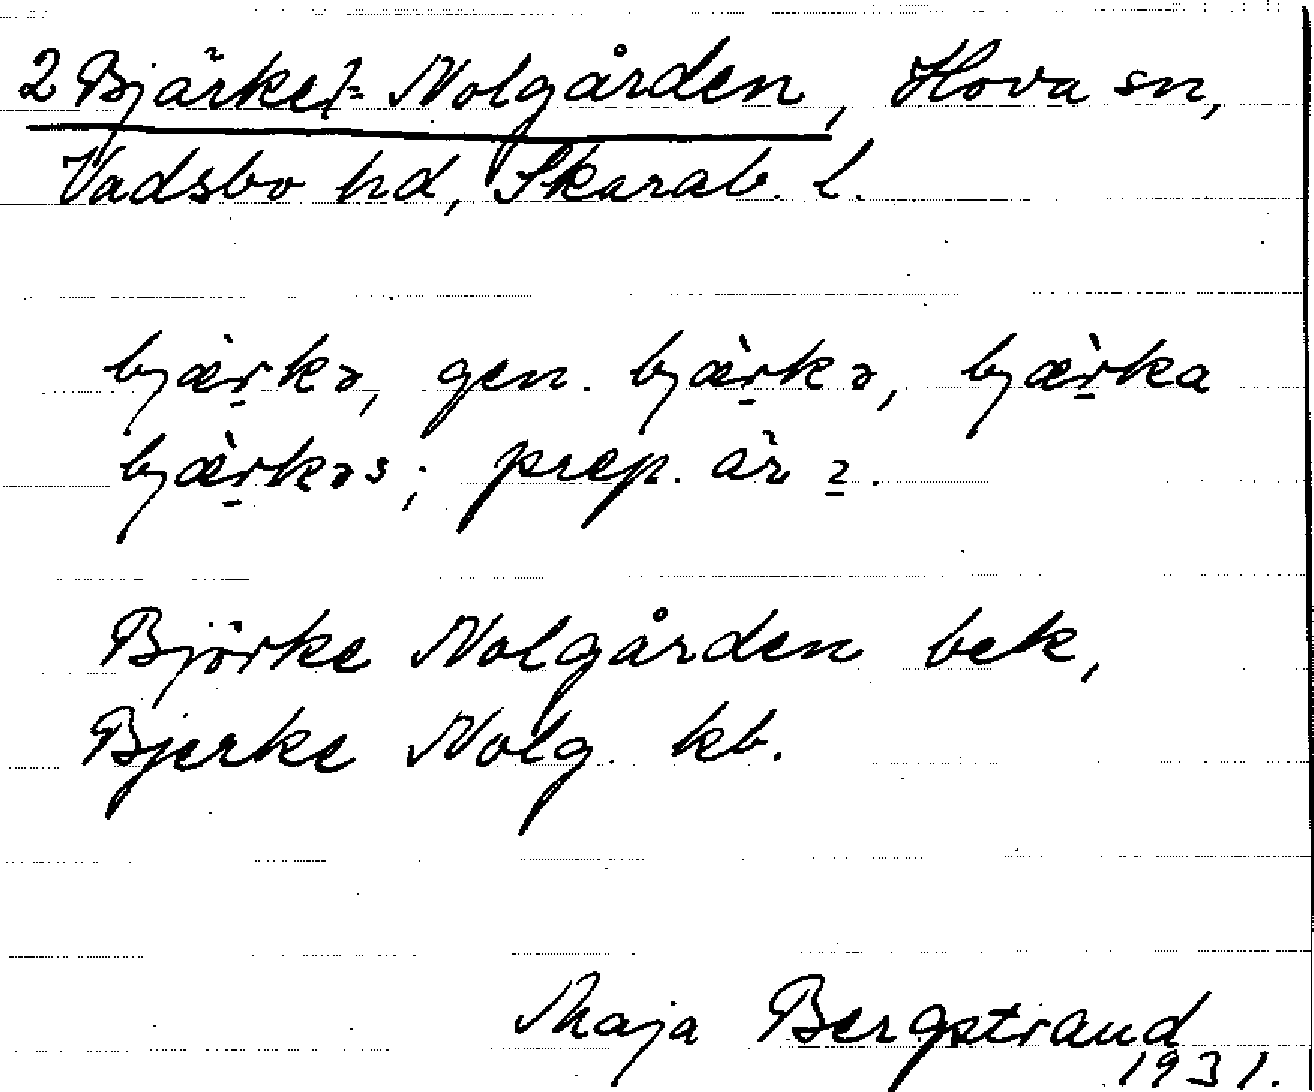 2 Bjärke Nolgården, Hova sn,
Vadsbo hd, Skarab. l.
bjæ̀r̠kə, gen. bjæ̀r̠kə, bjæ̀r̠ka
bjæ̀r̠kəs; prep. är
Björke Nolgården bek,
Bjerke Nolg. kb.
Maja Bergstrand
1931.